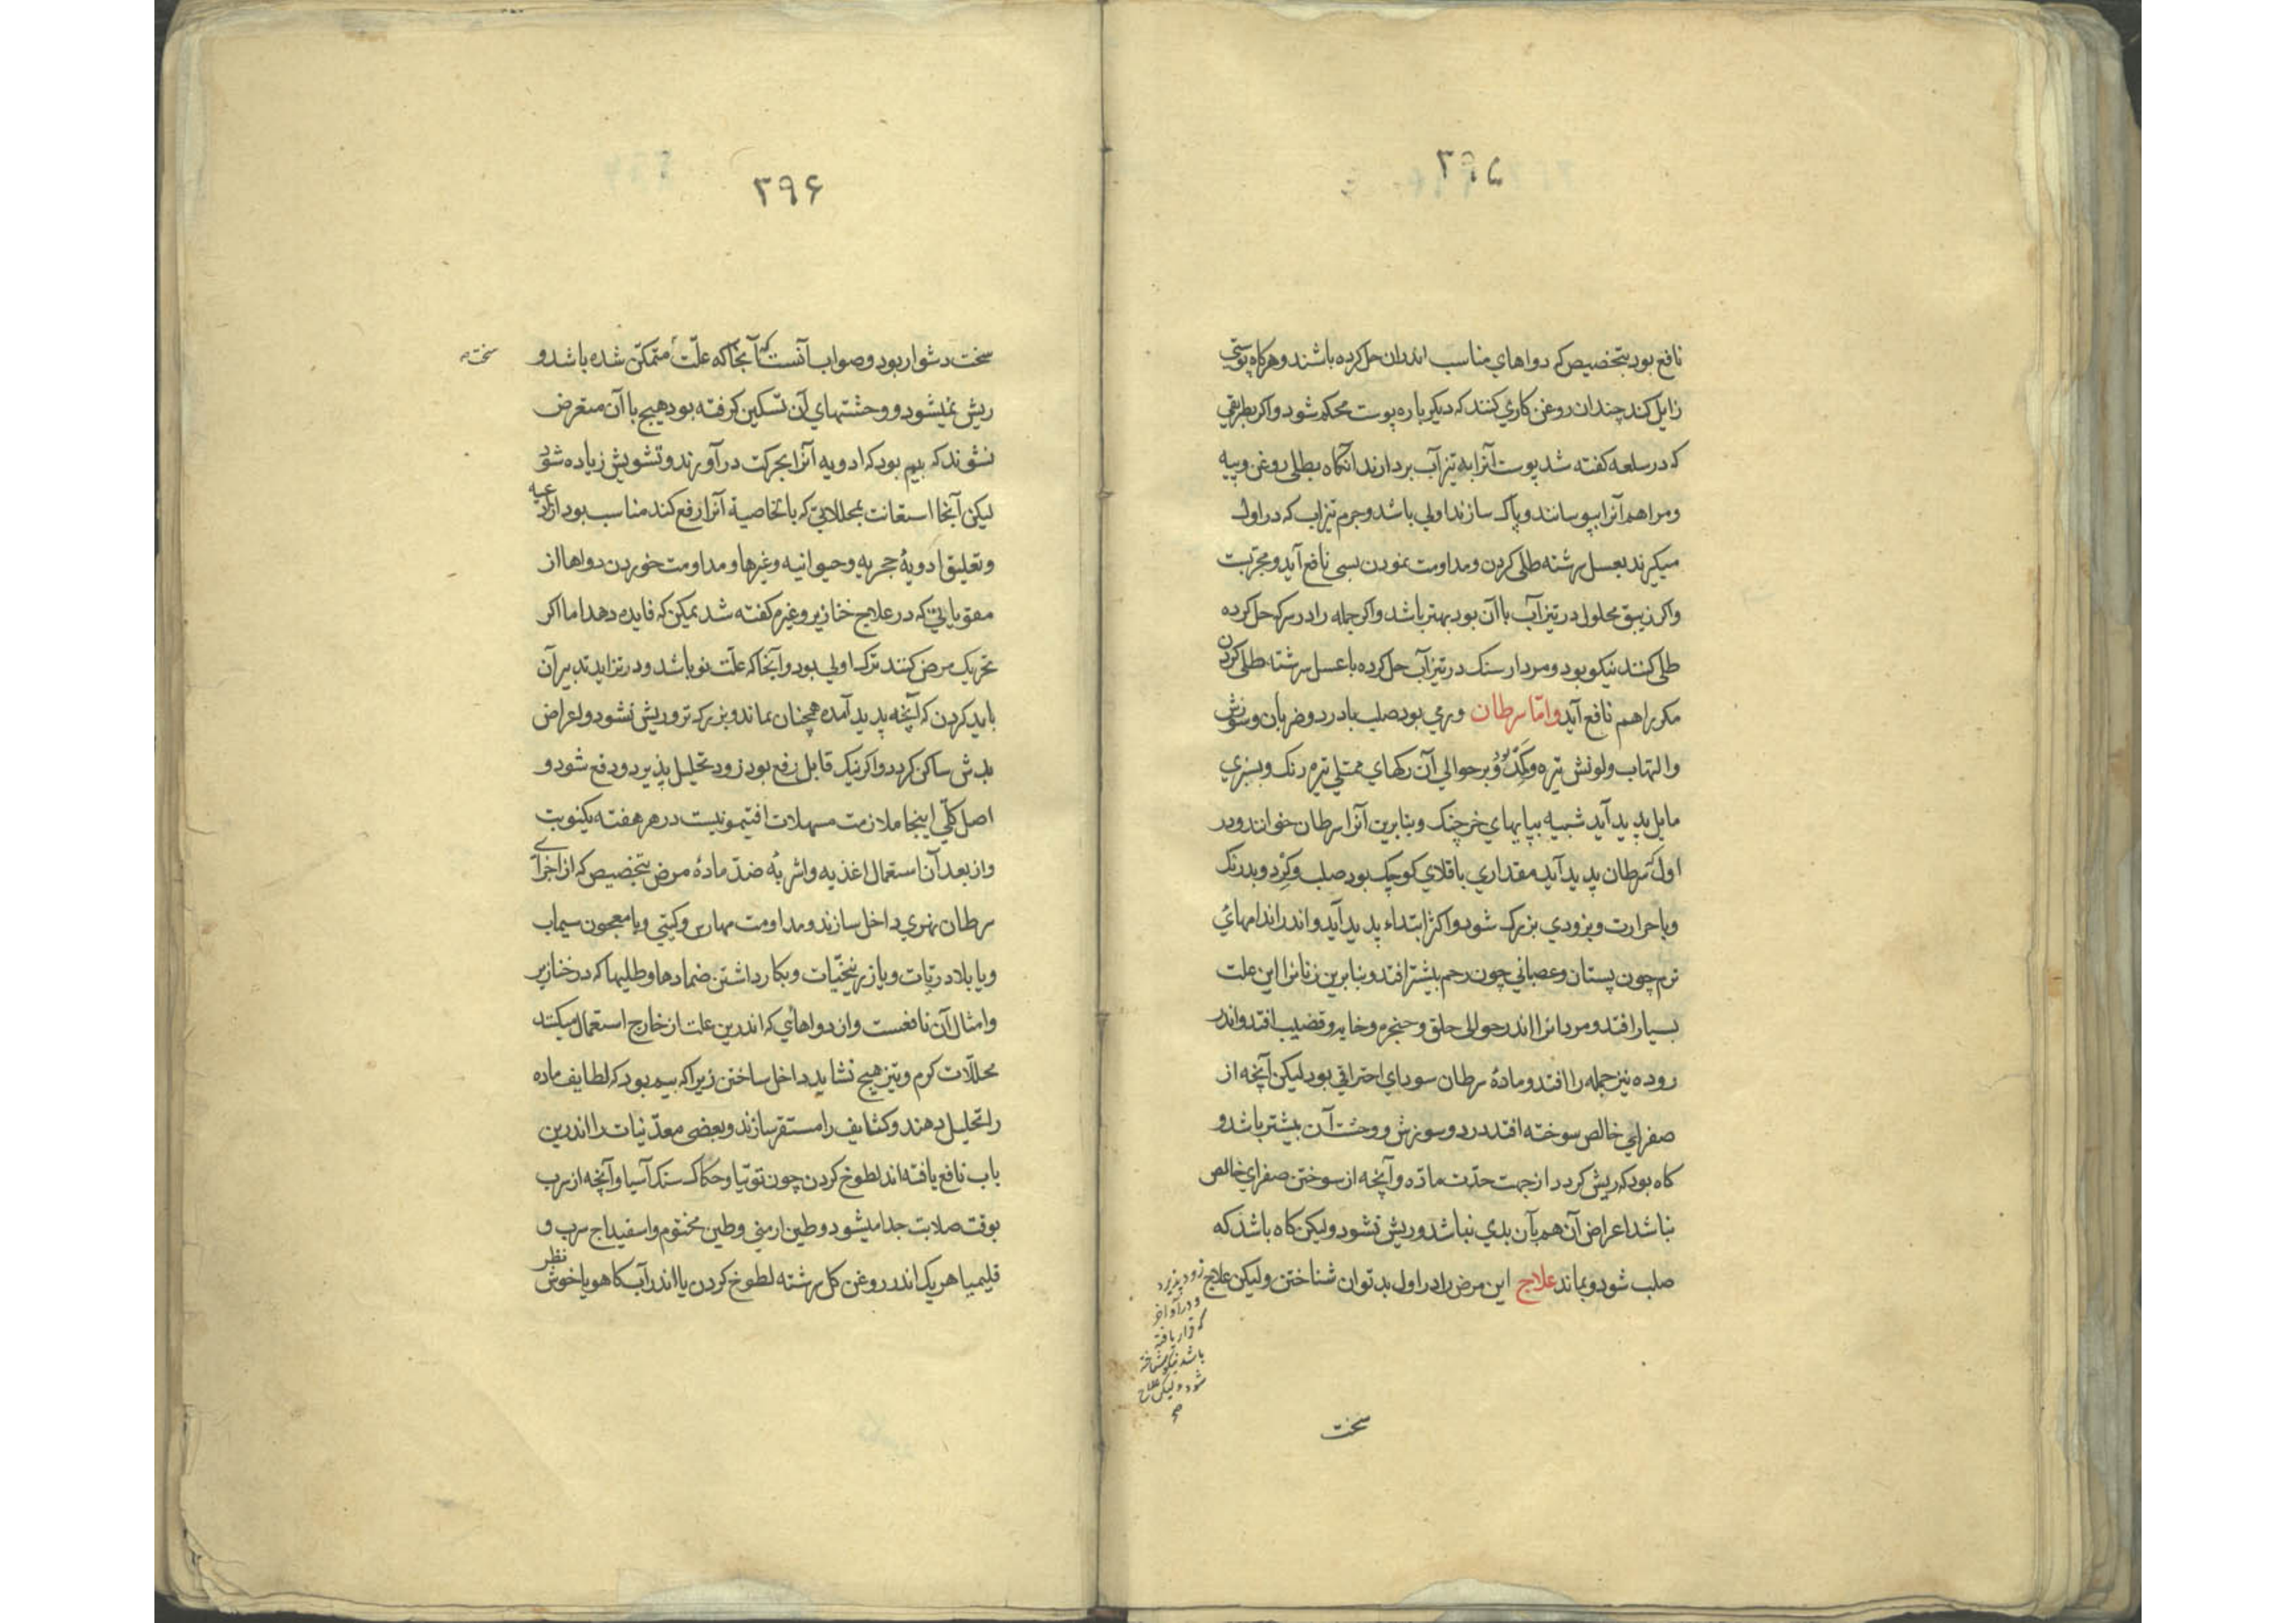 ۳۹۵
نافع بود بتخصیص که دواهای مناسب اندران حل کرده باشند و هرکاه پوستی
زایل کند چندان روغن کاری کنند که دیکر باره پوست محکم شود و اکر بطریقی
که در سلعه کفته شد پوست آنرا به تیزآب بردارند آنکاه بطلی روغن و پیه
و مراهم آنرا بپوسانند و پاک سازند اولی باشد و جرم تیزاب که در اول
میکیرند بعسل سرشته طلی کردن و مداومت نمودن بسی نافع آید و مجربت
و اکر زیبق محلول در تیزآب با آن بود بهتر باشد و اکر جمله را در سرکه حل کرده
طلی کنند نیکو بود و مردار سنک در تیزآب حل کرده با عسل سرشته طلی کردن
مکرر هم نافع آید و امّا سرطان ورمی بود صلب با درد و ضربان و سوزش
و التهاب و لونش تیره و کمد بود و بر حوالی آن رکهای ممتلی تیره رنک و بسبزی
مایل پدید آید شبیه بپایهای خرچنک و بنابرین آنرا سرطان خوانند و در
اول که سرطان پدید آید مقداری باقلای کوچک بود صلب و کرد و بدرنک
و با حرارت و بزودی بزرک شود و اکثر ابتداء پدید آید و اندر اندامهای
نرم چون پستان و عصبانی چون رحم بیشتر افتد و بنابرین زنانرا این علت
بسیار افتد و مردانرا اندر حوالی حلق و حنجره و خایه و قضیب افتد و اندر
روده نیز جمله را افتد و مادهٔ سرطان سودای احتراقی بود لیکن آنچه از
صفرای خالص سوخته افتد درد و سوزش و وحشت آن بیشتر باشد و
کاه بود که ریش کردد از جهت حدّت مادّه و آنچه از سوختن صفرای خالص
نباشد اعراض آن هم بآن بدی نباشد و ریش نشود و لیکن کاه باشد که
صلب شود و بماند علاج این مرض را در اول بد توان شناختن و لیکن علاج
زود پذیرد
و در آواخر
که قرار یافته
باشد نیکو شناخته
شود و لیکن علاج
صح
سخت
۳۹۶
سخت دشوار بود و صواب آنست که آنجا که علّت متمکن شده باشد و
سخت
ریش نمیشود و وحشتهای آن تسکین کرفته بود هیچ با آن متعرض
نشوند که بیم بود که ادویه آنرا بحرکت درآورند و تشویش زیاده شود
لیکن آنجا استعانت بمحللاتی که بالخاصیة آنرا رفع کند مناسب بود از ادعیه
و تعلیق ادویهٔ حجریه و حیوانیه و غیرها و مداومت خوردن دواها از
مقویاتی که در علاج خنازیر و غیره کفته شد یمکن که فایده دهد اما اکر
تحریک مرض کنند ترک اولی بود و آنجا که علّت نو باشد و در تزاید تدبیر آن
باید کردن که آنچه پدید آمده همچنان بماند و بزرک تر و ریش نشود و اعراض
بدش ساکن کردد و اکر نیک قابل رفع بود زود تحلیل پذیرد و دفع شود و
اصل کلّی اینجا ملازمت مسهلات افتیمونیست در هر هفته یکنوبت
و از بعد آن استعمال اغذیه و اشربه ضدّ مادهٔ مرض بتخصیص که از اجزای
سرطان نهری داخل سازند و مداومت مهارس و کبتی و یا معجون سیماب
و یا بلادریّات و یا زرنیخیّات و بکار داشتن ضمادها و طلیها که در خنازیر
و امثال آن نافعست و از دواهای که اندرین علت از خارج استعمال میکنند
محللات کرم و تیز هیچ نشاید داخل ساختن زیرا که بیم بود که لطایف ماده
را تحلیل دهند و کثایف را مستقر سازند و بعضی معدنیات را اندرین
باب نافع یافته اند لطوخ کردن چون توتیا و حکاک سنک آسیا و آنچه از سرب
بوقت صلابت جدا میشود و طین ارمنی و طین مختوم و اسفیداج سرب و
قلیمیا هر یک اندر روغن کل سرشته لطوخ کردن یا اندر آب کاهو یا خوش نظر